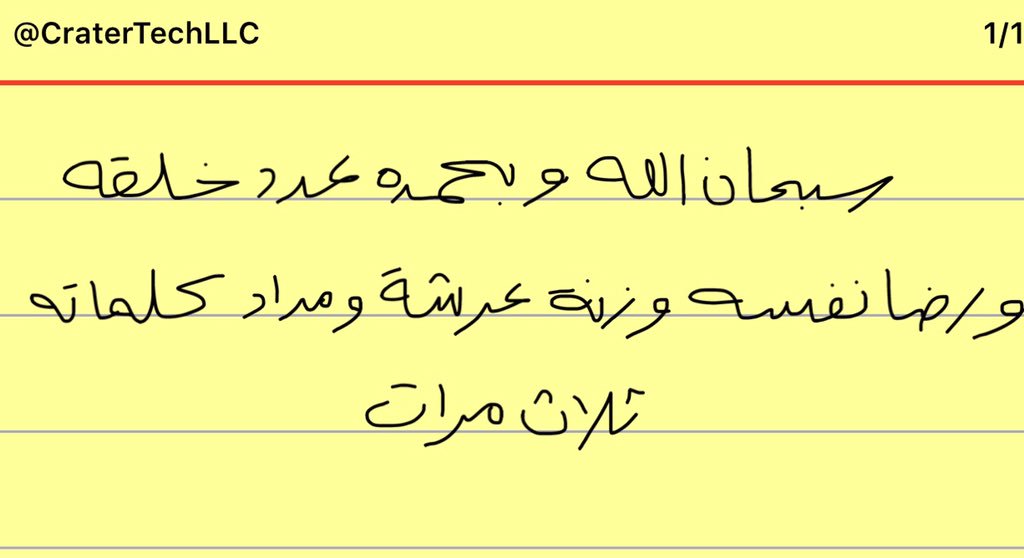 @CraterTechLLC 1/1
سبحان الله وبحمده عدد خلقه
ورضا نفسه وزنة عرشة ومداد كلماته
ثلاث مرات